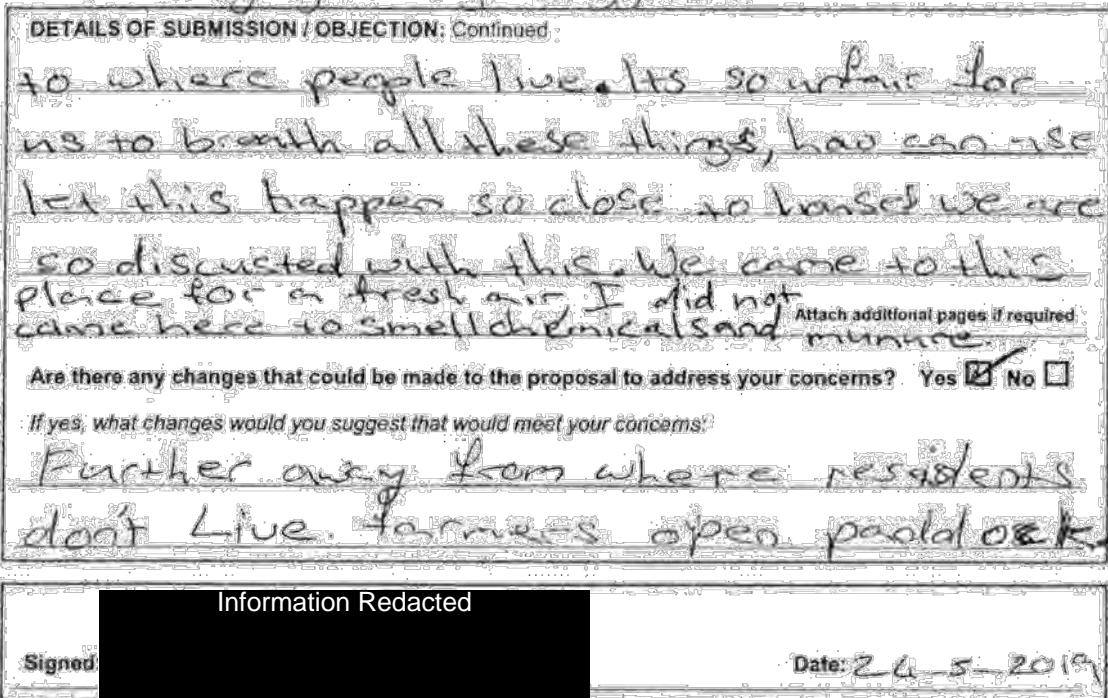 DETAILS OF SUBMISSION / OBJECTION: Continued
to where people live. Its so unfair for
us to breath all these things, how can use
let this happen so close to houses we are
so discusted with this. We came to this
place for a fresh air, I did not
came here to smell chemicals and munure.
Attach additional pages if required
Are there any changes that could be made to the proposal to address your concerns? Yes No
If yes, what changes would you suggest that would meet your concerns:
Further away from where resadents
don't Live. farmers open paddock.
Information Redacted
Signed:
Date: 24-5-2019